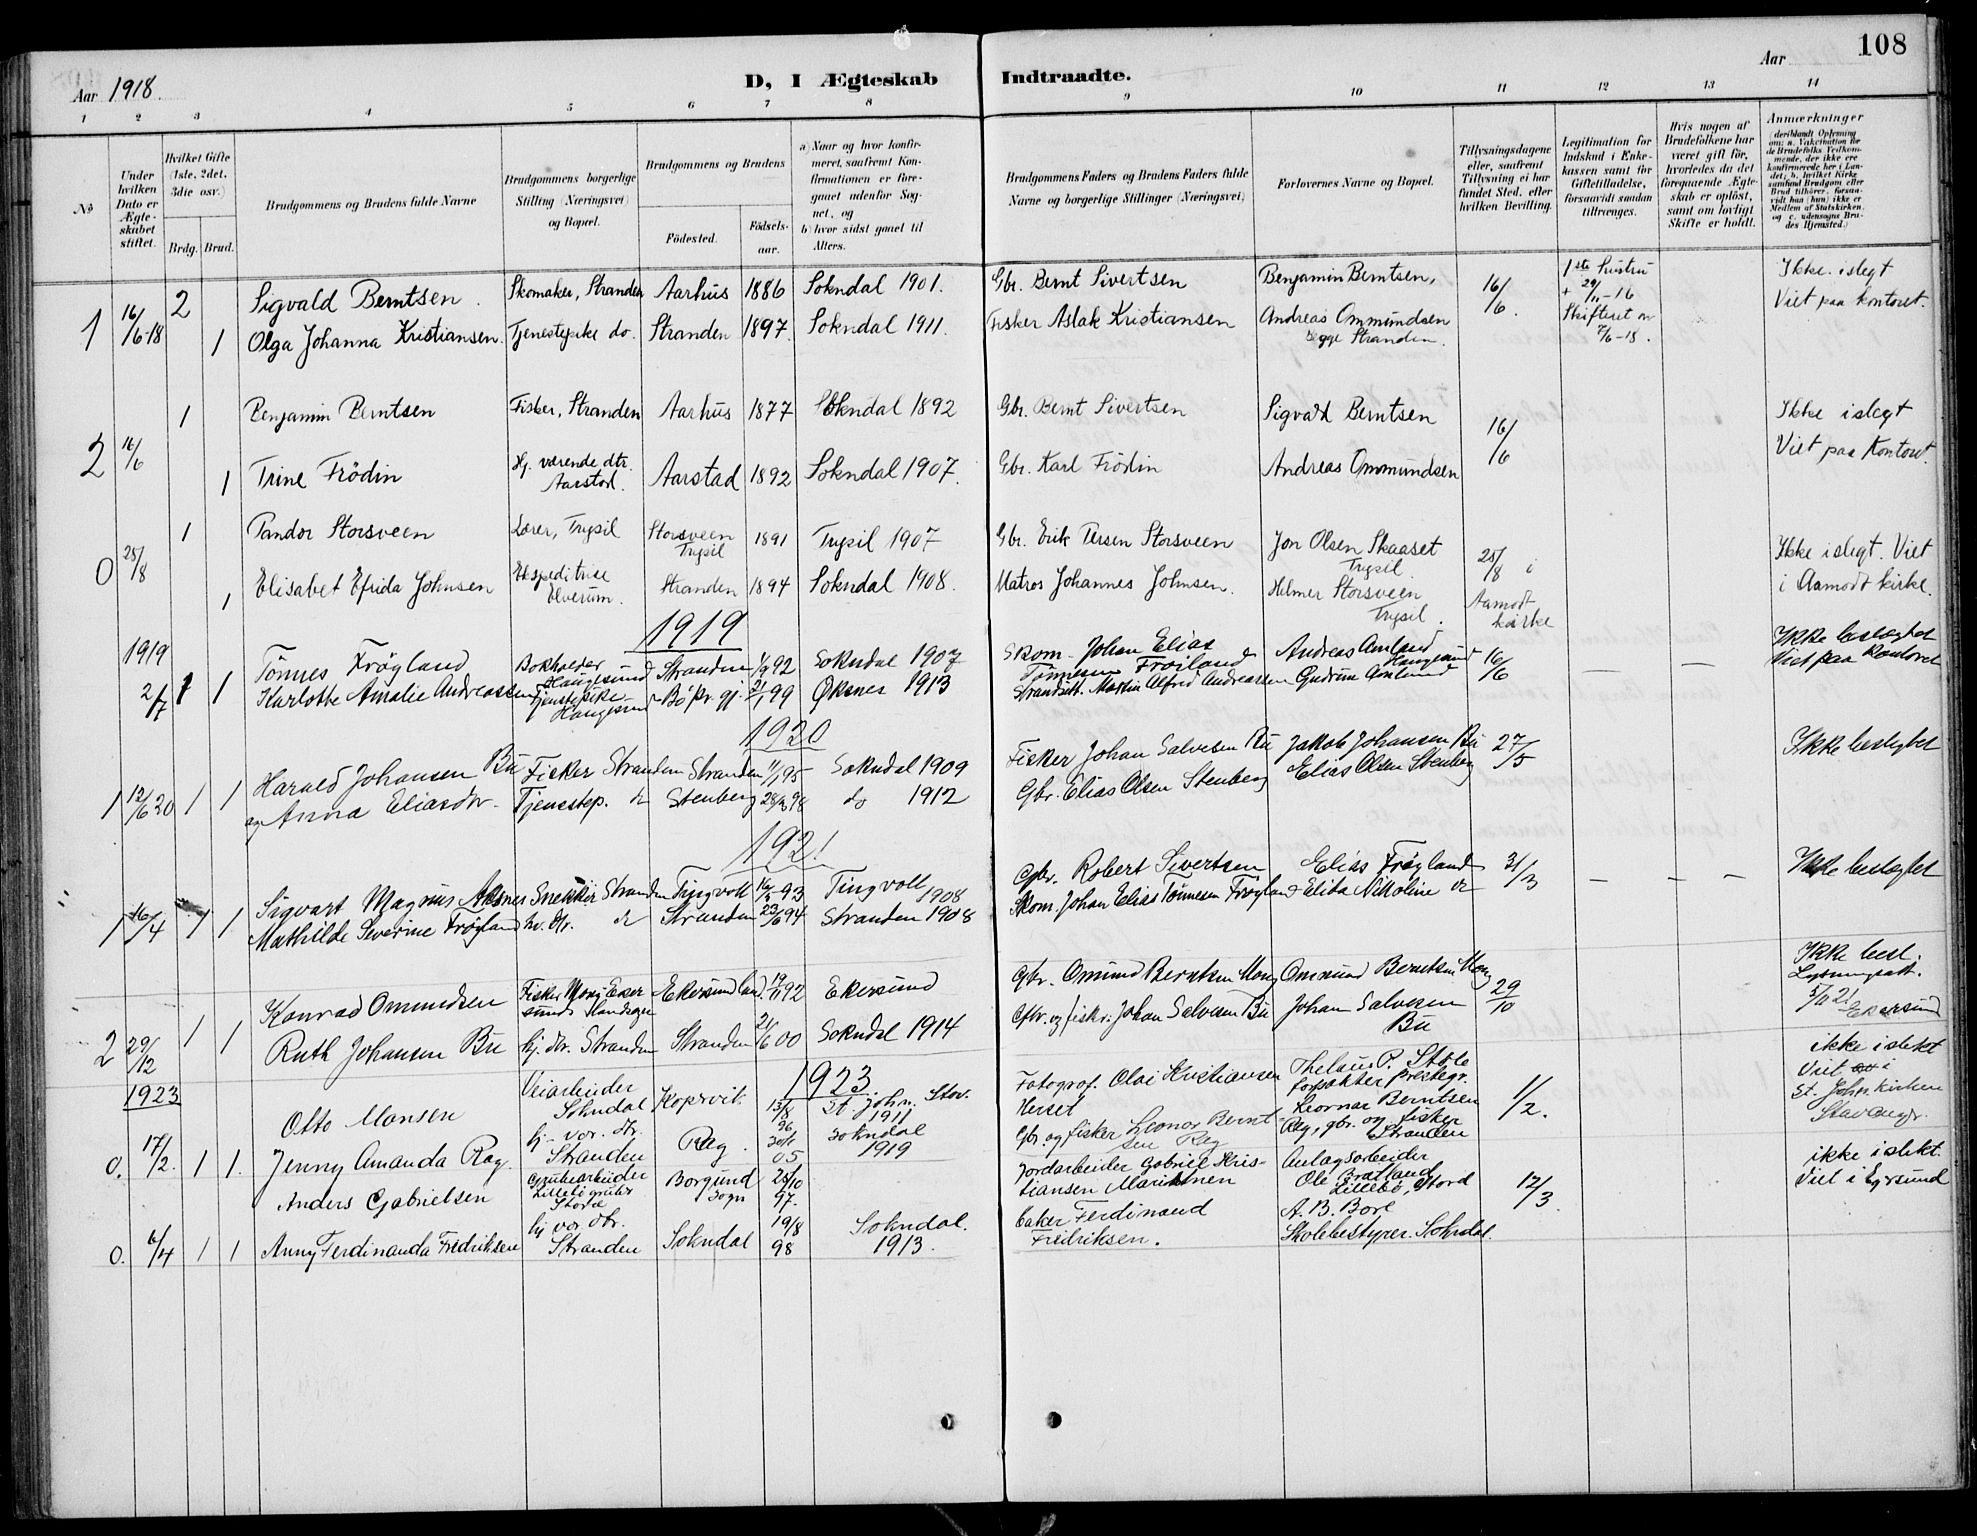 108
Aar 1918
D, I Ægteskab Indtraadte.
Aar
1 2 3 4 5 6 7 8 9 10 11 12 13 14
No
Under hvilken Dato er Ægteskabet stiftet.
Hvilket Gifte (1ste, 2det, 3die osv.)
Brdg. Brud.
Brudgommens og Brudens fulde Navne
Brudgommens borgerlige Stilling (Næringsvei) og Bopæl.
Brudgommens og Brudens
Fødested. Fødselsaar.
a) Naar og hvor konfirmeret, saafremt Konfirmationen er foregaaet udenfor Sognet, og
b) hvor sidst gaaet til Alters.
Brudgommens Faders og Brudens Faders fulde Navne og borgerlige Stillinger (Næringsvei)
Forlovernes Navne og Bopæl.
Tillysningsdagene eller, saafremt Tillysning ei har fundet Sted, efter hvilken Bevilling.
Legitimation for Indskud i Enkekassen samt for Giftetilladelse, forsaavidt saadan tiltrænges.
Hvis nogen af Brudefolkene har været gift før, hvorledes da det foregaaende Ægteskab er opløst, samt om lovligt Skifte er holdt.
Anmærkninger
1 16/6-18 2 Sigvald Berntsen. Skomaker, Stranden Aarhus 1886 Sokndal 1901. Gbr. Bernt Sivertsen Benjamin Berntsen, 16/6. 1ste hustru + 29/11-16 Ikke i slegt
1 Olga Johanna Kristiansen. Tjenestepike do. Stranden 1897. Sokndal 1911. Fisker Aslak Kristiansen Andreas Ommundsen begge Stranden. Skifteret av 7/6-18. Viet paa kontoret.
2 16/6 1 Benjamin Berntsen Fisker, Stranden Aarhus 1877 Sokndal 1892 Gbr. Bernt Sivertsen Sigvald Berntsen 16/6 Ikke i slegt
1 Trine Frödin Hj. værende dtr. Aarstad. Aarstad 1892 Sokndal 1907. Gbr. Karl Frödin Andreas Ommundsen Viet paa Kontoret.
0 25/8 1 Pandor Storsveen Lærer, Trysil Storsveen Trysil 1891 Trysil 1907 Gbr. Erik Persen Storsveen Jon Olsen Skaaset Trysil. 25/8 i Aamodt kirke Ikke i slegt. Viet
1 Elisabet Efrida Johnsen Ekspeditrise Elverum. Stranden 1894 Sokndal 1908. Matros Johannes Johnsen. Helmer Storsveen Trysil. i Aamodt kirke.
1919
1919 Tönnes Frøyland Bokholder Haugesund Stranden 1/9 92 Sokndal 1907 Skom. Johan Elias Tönnesen Frøiland Andreas Amlund Haugesund 16/6 — — Ikke beslegtet
2/7 1 1 Karlotte Amalie Andreassen Tjenestepike Haugesund Bö pr. gj. 21/1 99 Øksnes 1913 Strandsitt. Martin Alfred Andreassen Gudrun Amlund Viet paa kontoret
1920
1 12/6 20 1 1 Harald Johansen Bu Fisker Stranden Stranden 11/1 95 Sokndal 1909 Fisker Johan Salvesen Bu Jakob Johansen Bu 27/5 Ikke beslegtet
og Anna Eliasdtr. Tjenestep. do Stenberg 28/3 98 do 1912 Gbr. Elias Olsen Stenberg Elias Olsen Stenberg
1921
1 16/4 1 1 Sigvart Magnus Aksnes Snekker Stranden Tingvoll 16/3 93 Tingvoll 1908 Gbr. Robert Sivertsen Elias Frøyland 31/3 — — — Ikke beslegtet
Mathilde Severine Frøyland hv. dtr. do Stranden 23/6 94 Stranden 1908 Skom. Johan Elias Tønnesen Frøyland Elida Nikoline do
2 29/12 1 1 Konrad Omundsen Fisker Mong Ekersunds Landsogn Ekersund land. 19/11 92 Ekersund Gbr. Omund Berntsen Mong Ommund Berntsen Mong 29/10 Ikke besl. Lysningsatt. 5/11 21 Ekersund
Ruth Johansen Bu hj. dtr. Stranden Stranden 21/6 00 Sokndal 1914 Gbr. og fisker. Johan Salvesen Bu Johan Salvesen Bu
1923
1923 Otto Monsen Veiarbeider Sokndal Kopervik 13/8 96 St. Johs. Stav. 1911 Fotograf. Olai Kristiansen Herset forpakter prestegr. 1/2. ikke i slekt Viet i St. Johs. kirken Stavanger.
0. 17/2. 1 1. Jenny Amanda Ræg. hj. vær. dtr. Stranden Ræg. 30/1 05 Sokndal 1919 Gbr. og fisker Leonar Berntsen Ræg Leornar Berntsen Ræg, gbr. og fisker Stranden
Anders Gabrielsen Grubearbeider Litlebö gruber Stord Borgund sogn 25/10 97. Jordarbeider Gabriel Kristiansen Anlægsarbeider Ole Bratland Litlebö, Stord 12/3. ikke i slekt. Viet i Egersund
0. 6/4 1 1 Anny Ferdinanda Fredriksen hj vær dtr. Stranden Sokndal 19/8 98 Sokndal. 1913. baker Ferdinand Fredriksen. A. B. Bore Skolebestyrer. Sokndal.